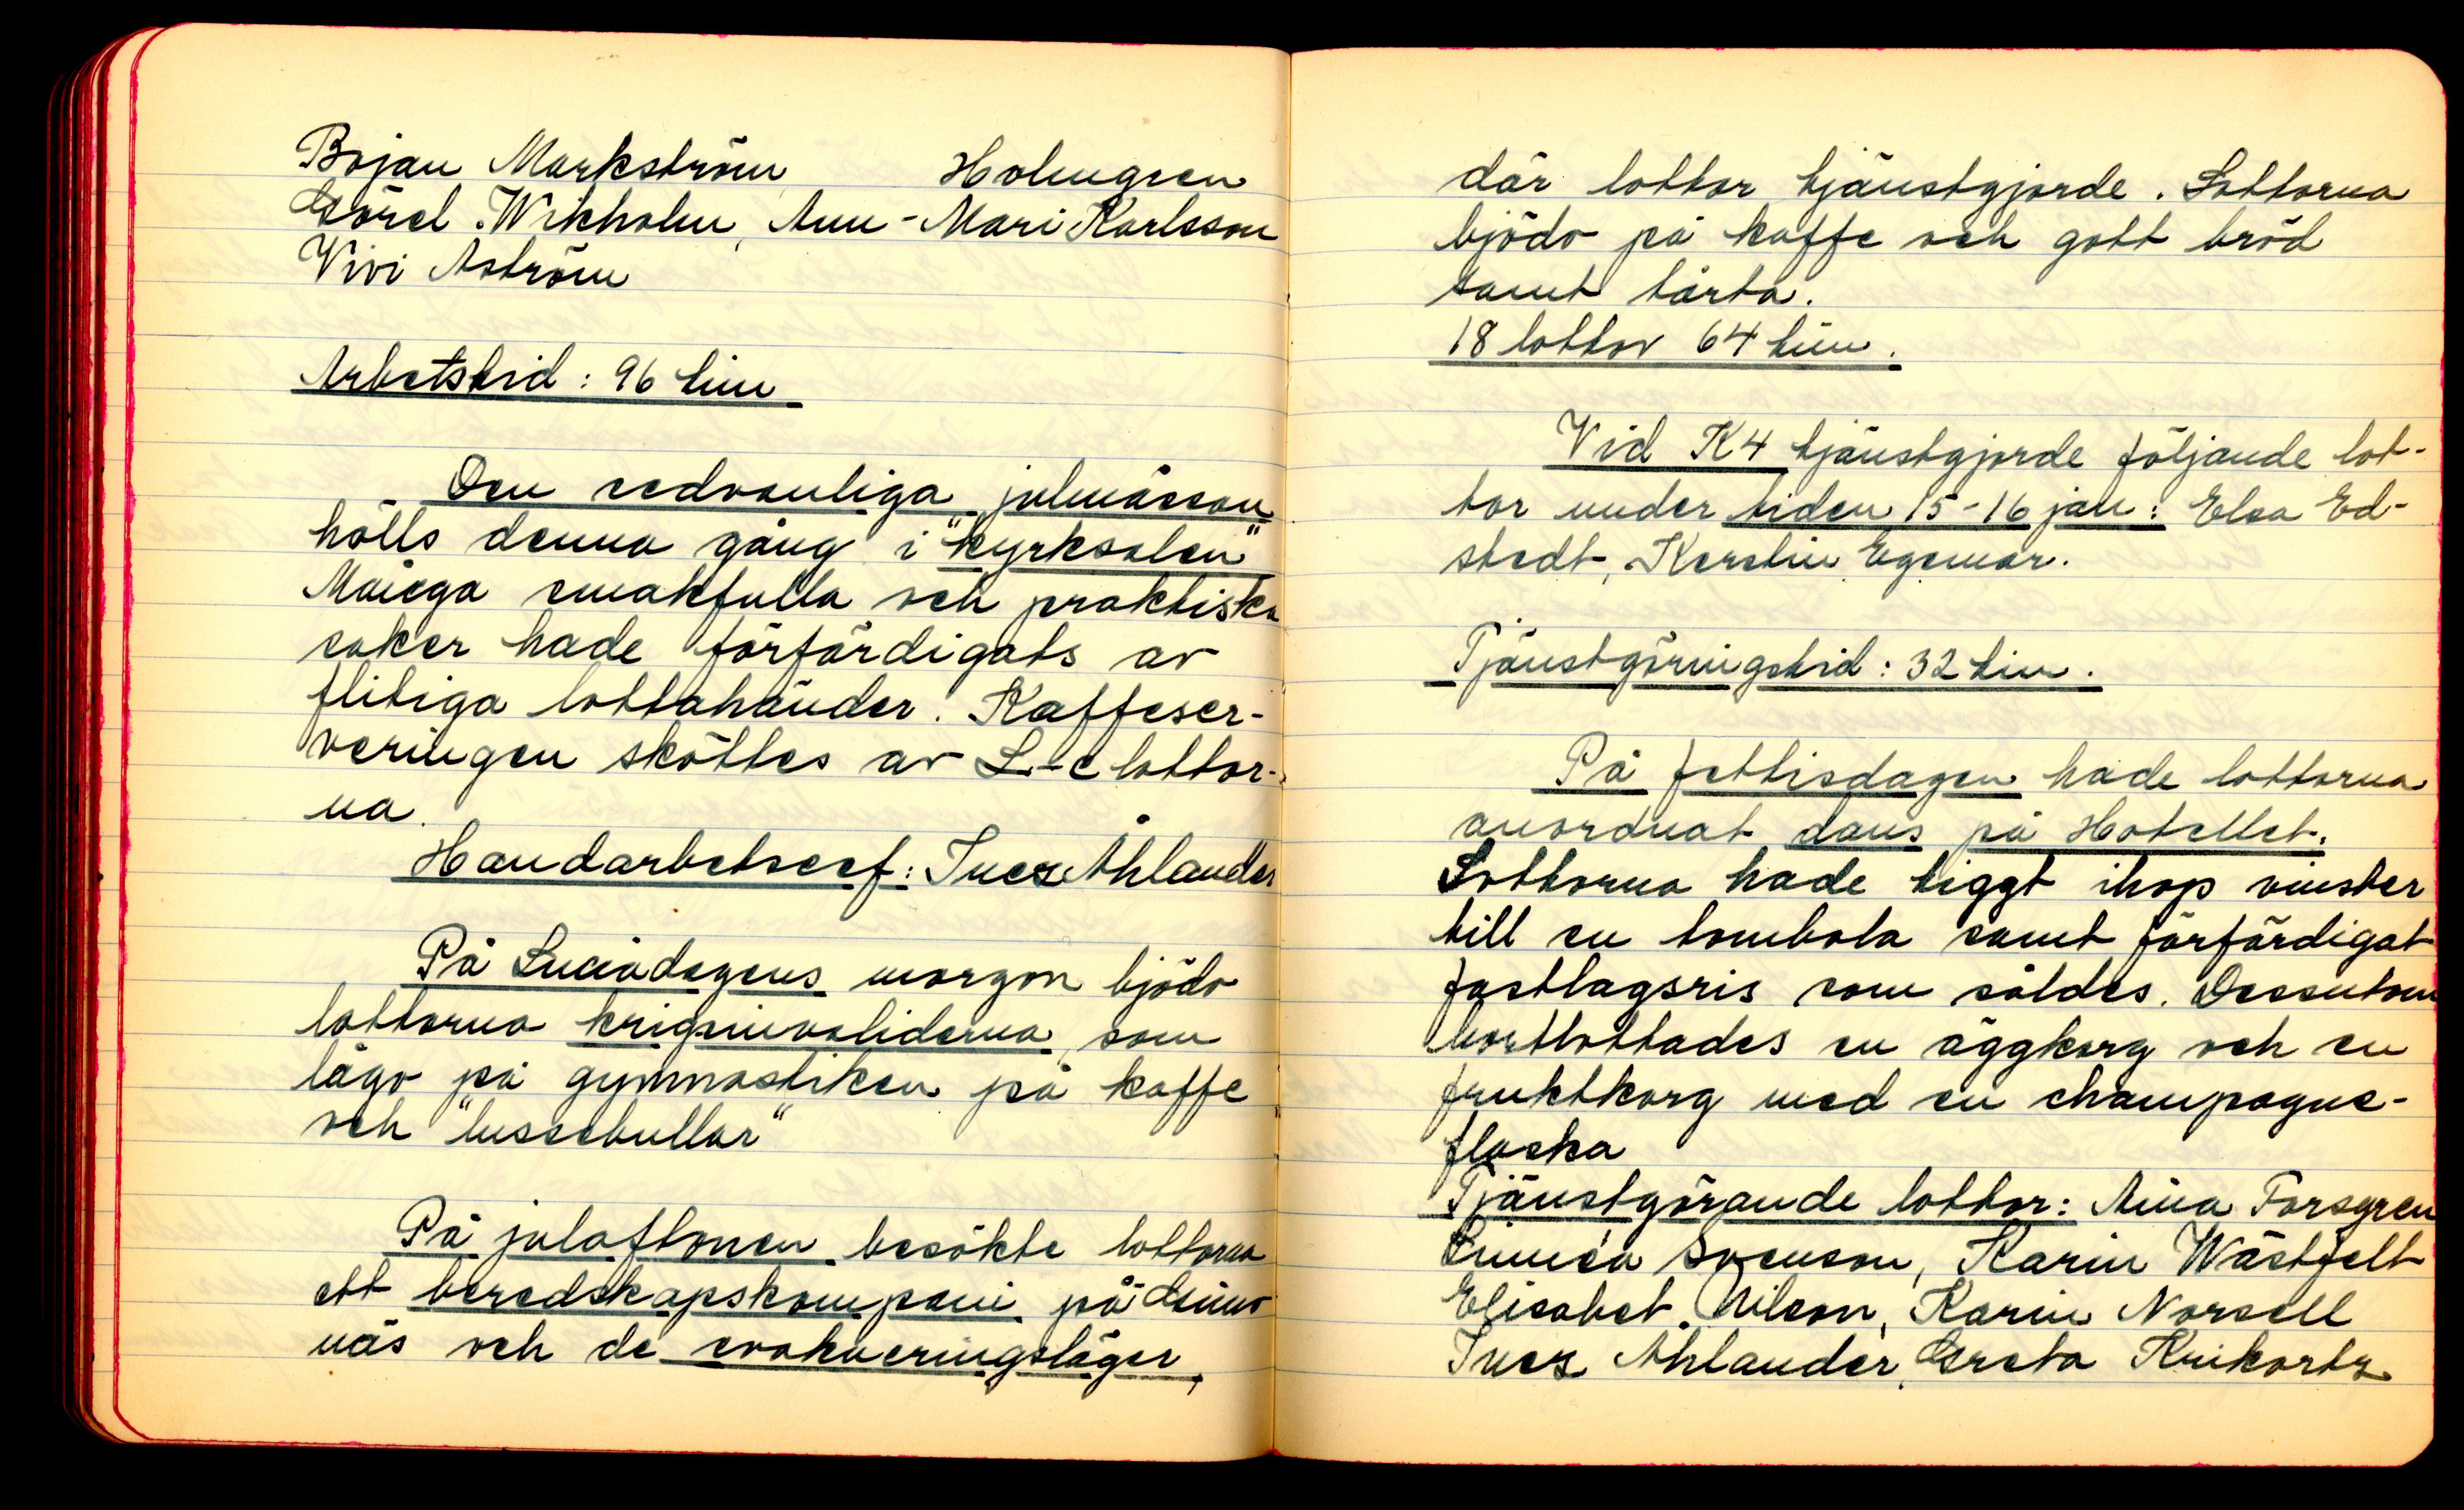 Bojan Markström Holmgren
Görel Wikholm, Ann-Mari Karlsson
Vivi Åström
Arbetstid: 96 tim
Den sedvanliga julmässan
hölls denna gång i "kyrksalen"
Många smakfulla och praktiska
saker hade förfärdigats av
flitiga lottahänder. Kaffeser-
veringen sköttes av L-c lottor-
na.
Handarbetscef: Inez Åhlander
På Luciadagens morgon bjödo
lottorna krigsinvaliderna, som
lågo på gymnastiken på kaffe
och "lussebullar"
På julaftonen besökte lottorna
ett beredskapskompani på Grims-
näs och de evakueringsläger,
där lottor tjänstgjorde. Lottorna
bjödo på kaffe och gott bröd
samt tårta.
18 lottor 64 tim.
Vid K4 tjänstgjorde följande lot-
tor under tiden 15-16 jan: Elsa Ed-
stedt, Kerstin Egemar.
Tjänstgöringstid: 32 tim.
På fettisdagen hade lottorna
anordnat dans på Hotellet.
Lottorna hade tiggt ihop vinster
till en tombola samt förfärdigat
fastlagsris som såldes. Dessutom
bortlottades en äggkorg och en
fruktkorg med en champagne-
flaska
Tjänstgörande lottor: Aina Forsgren
Linnéa Svenson, Karin Wästfelt
Elisabet Nilson, Karin Norsell
Inez Åhlander, Greta Krikortz